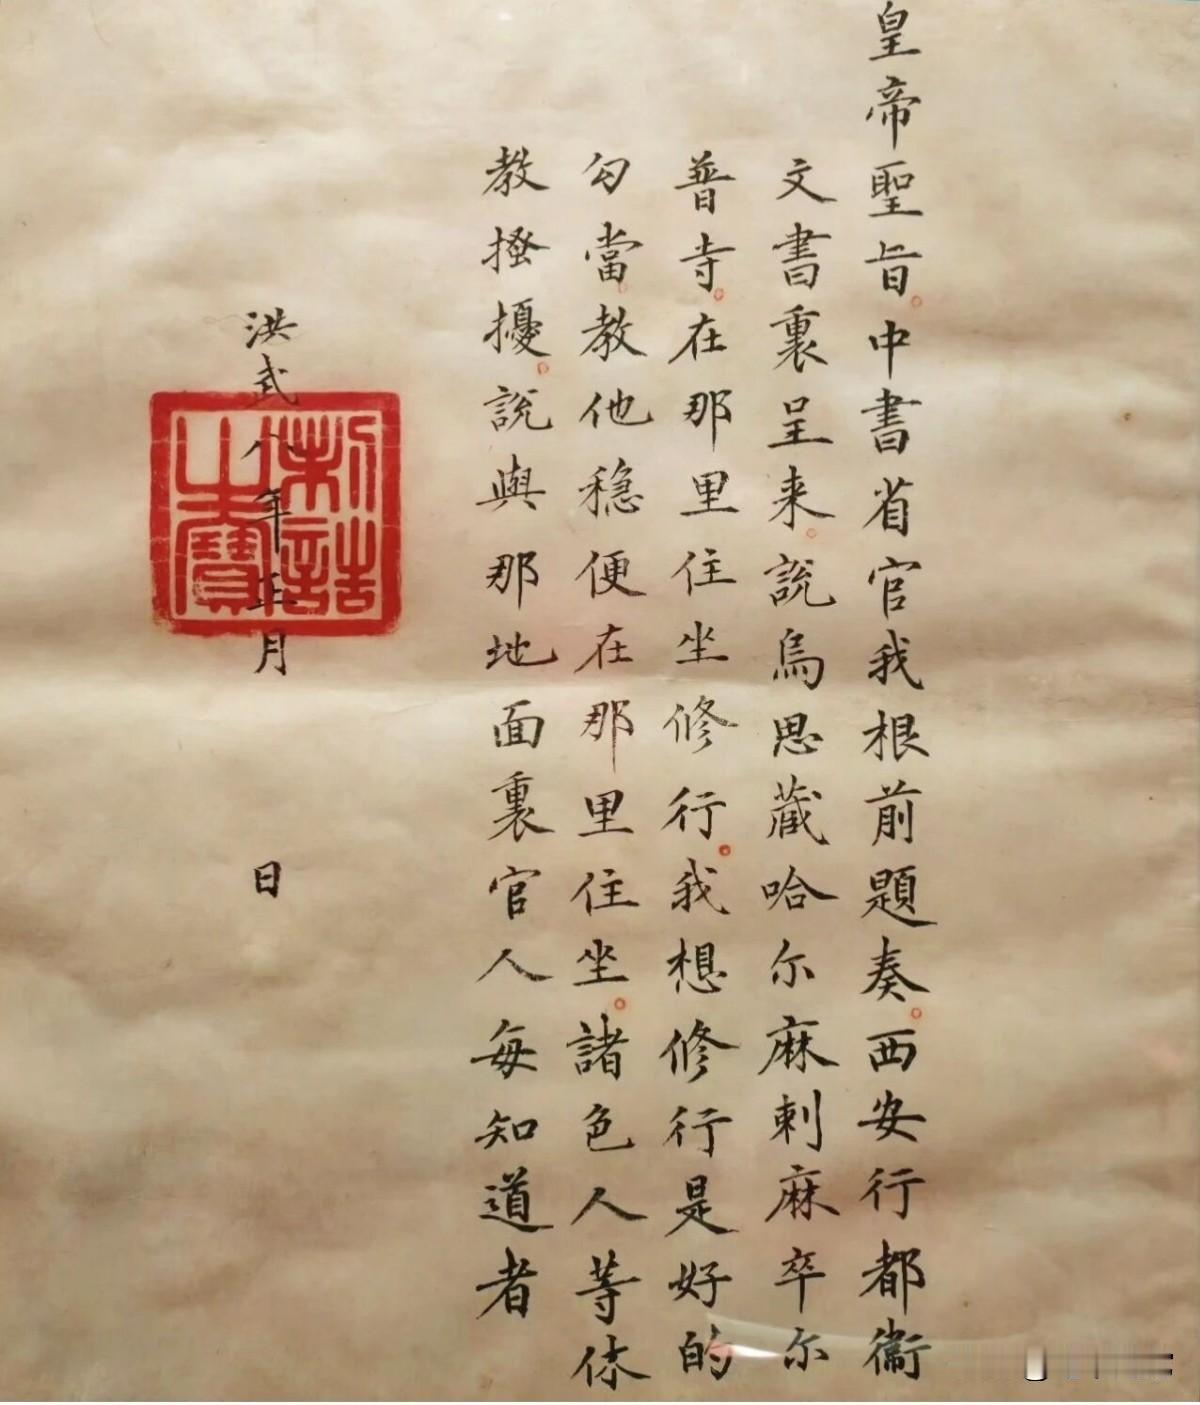 皇帝聖旨。中書省官我根前題奏。西安行都衞
文書裏呈来。説烏思藏哈尔麻剌麻卒尔
普寺。在那里住坐修行。我想修行是好的
勾當。教他穏便在那里住坐。諸色人等休
教搔擾。説與那地面裏官人每知道者
洪武八年正月 日
制誥之寶